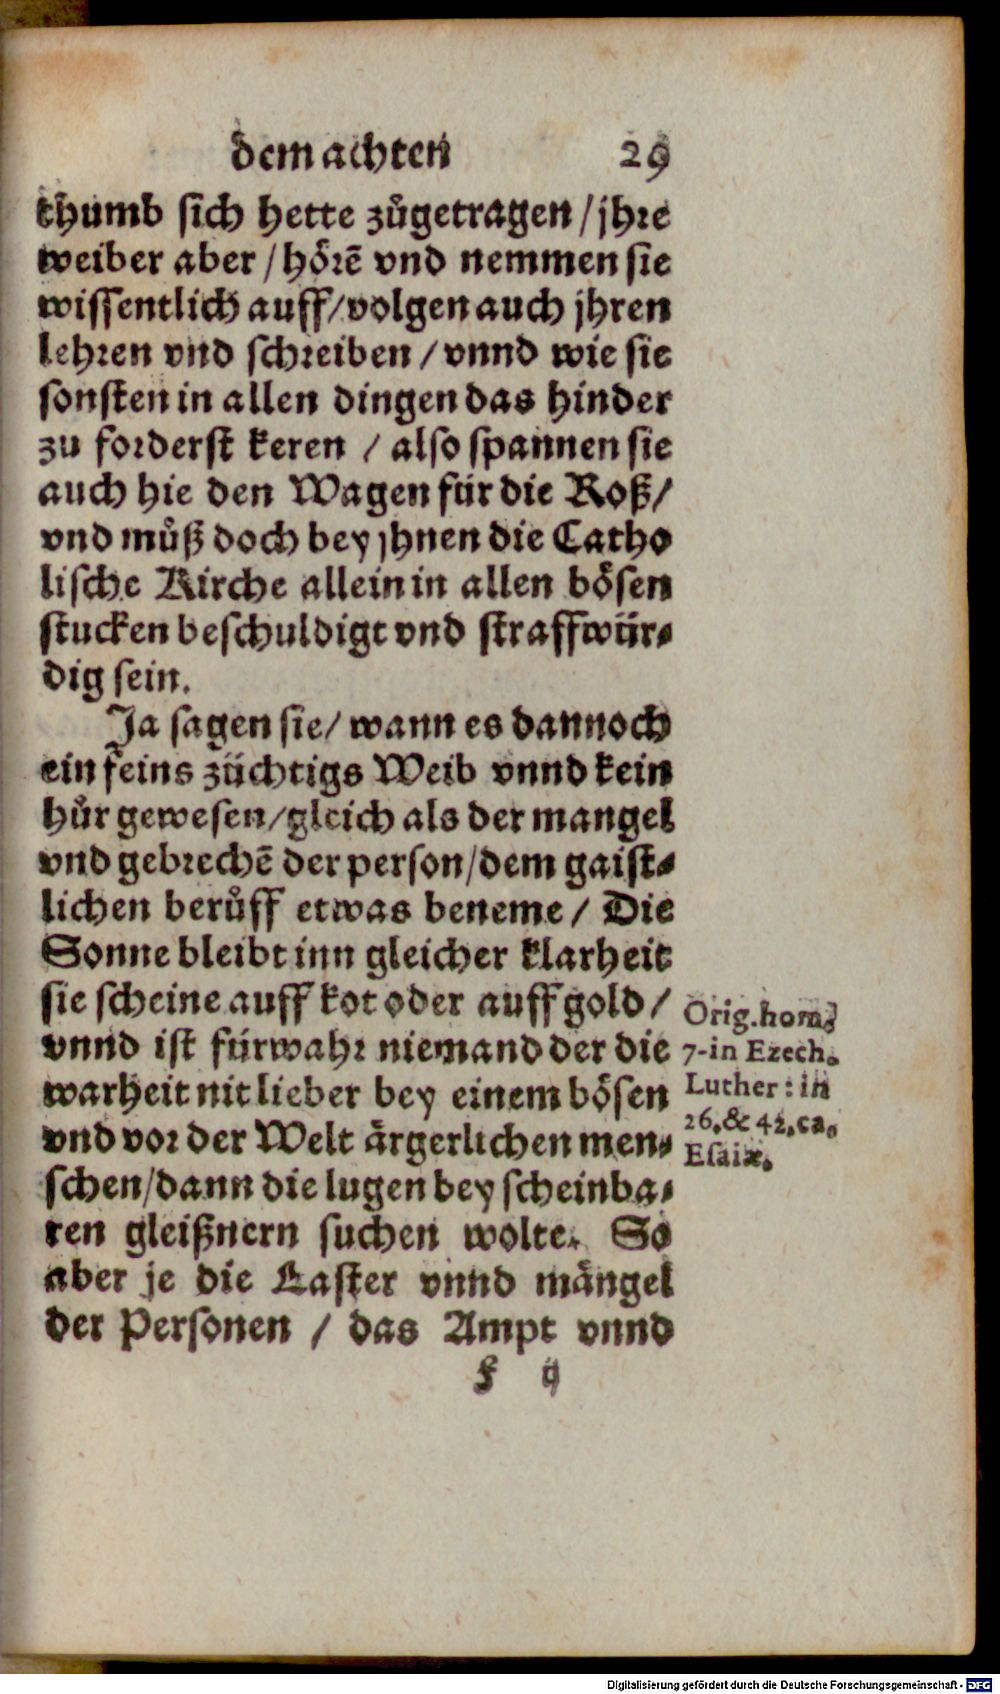 dem achten 29
thumb sich hette zůgetragen / jhre
weiber aber / hörē vnd nemmen sie
wissentlich auff / volgen auch jhren
lehren vnd schreiben / vnnd wie sie
sonsten in allen dingen das hinder
zu forderst keren / also spannen sie
auch hie den Wagen für die Roß /
vnd můß doch bey jhnen die Catho
lische Kirche allein in allen bösen
stucken beschuldigt vnd straffwür⸗
dig sein.
Ja sagen sie / wann es dannoch
ein feins züchtigs Weib vnnd kein
hůr gewesen / gleich als der mangel
vnd gebrechē der person / dem gaist⸗
lichen berůff etwas beneme / Die
Sonne bleibt inn gleicher klarheit
sie scheine auff kot oder auff gold /
vnnd ist fürwahr niemand der die
warheit nit lieber bey einem bösen
vnd vor der Welt ärgerlichen men⸗
schen / dann die lugen bey scheinba⸗
ren gleißnern suchen wolte. So
aber je die Laster vnnd mängel
der Personen / das Ampt vnnd
f ij
Orig. hom.
7. in Ezech.
Luther: in
26. & 42. ca.
Esaiæ.
Digitalisierung gefördert durch die Deutsche Forschungsgemeinschaft - DFG